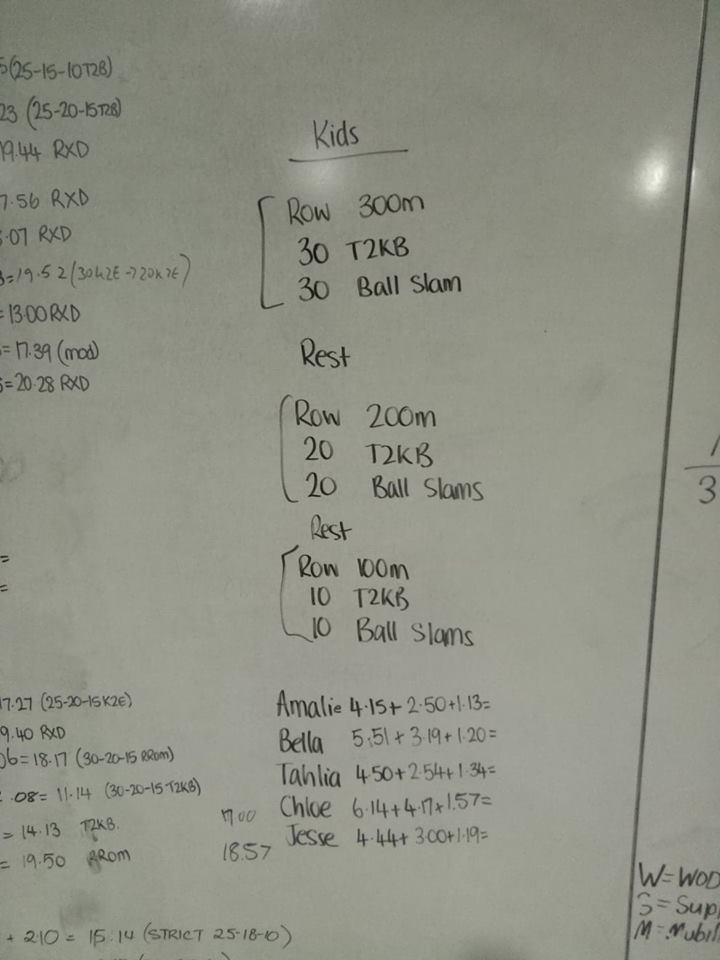 (25-15-10T2B)
23 (25-20-15T2B)
19.44 RXD
7.56 RXD
.07 RXD
=19.52 (30K2E→20K2E)
=13.00 RXD
=17.39 (mod)
=20.28 RXD
=
=
17.27 (25-20-15K2E)
9.40 RXD
06=18.17 (30-20-15 RRom)
.08=11.14 (30-20-15T2KB)
=14.13 T2KB.
=19.50 RRom
+ 2.10 = 15.14 (STRICT 25-18-10)
Kids
Row 300m
30 T2KB
30 Ball Slam
Rest
Row 200m
20 T2KB
20 Ball Slams
Rest
Row 100m
10 T2KB
10 Ball Slams
Amalie 4.15+2.50+1.13=
Bella 5.51+3.19+1.20=
Tahlia 4.50+2.54+1.34=
Chloe 6.14+4.17+1.57=
Jesse 4.44+3.00+1.19=
17.00
18.57
3
W=WOD
S=Sup
M=Mobil